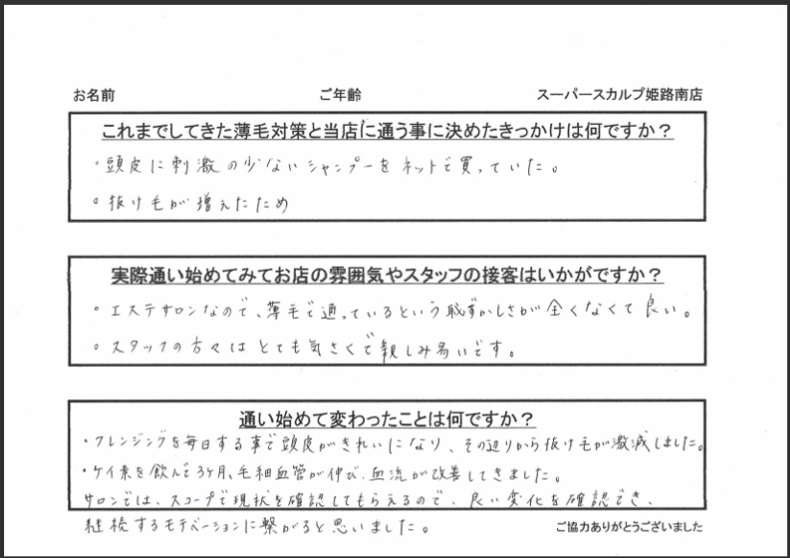 お名前 ご年齢 スーパースカルプ姫路南店
これまでしてきた薄毛対策と当店に通う事に決めたきっかけは何ですか？
・頭皮に刺激の少ないシャンプーをネットで買っていた。
・抜け毛が増えたため
実際通い始めてみてお店の雰囲気やスタッフの接客はいかがですか？
・エステサロンなので、薄毛で通っているという恥ずかしさが全くなくて良い。
・スタッフの方々はとても気さくで親しみ易いです。
通い始めて変わったことは何ですか？
・クレンジングを毎日する事で頭皮がきれいになり、その辺りから抜け毛が激減しました。
・ケイ素を飲んで3ヶ月、毛細血管が伸び、血流が改善してきました。
サロンでは、スコープで現状を確認してもらえるので、良い変化を確認でき、
継続するモチベーションに繋がると思いました。
ご協力ありがとうございました